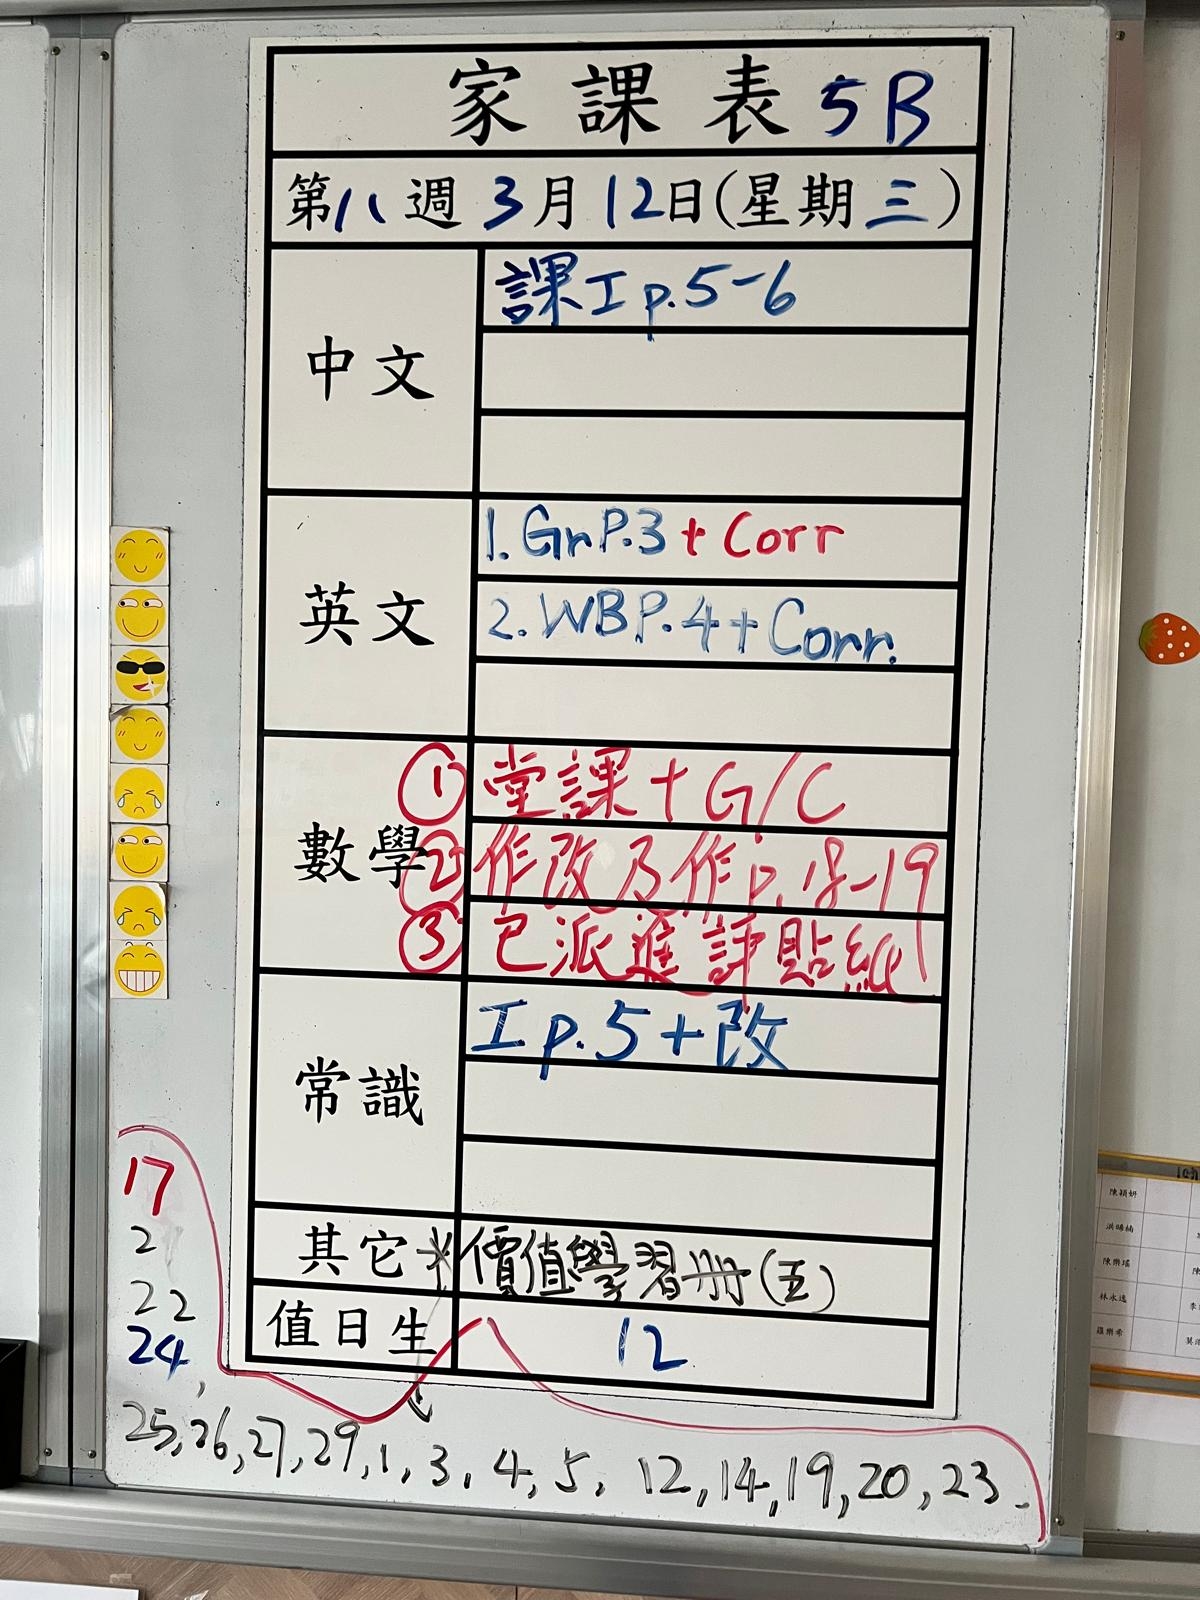 家課表 5B
第八週 3月12日(星期三)
中文
課工 p.5-6
英文
1. Gr P.3 + Corr
2. WB P.4 + Corr.
數學
① 堂課 + G/C
② 作改及作p.18-19
③ 已派進評貼紙
常識
工 p.5 + 改
其它
*價值學習冊(五)
值日生
12
17
2
22
24,
25, 26, 27, 29, 1, 3, 4, 5, 12, 14, 19, 20, 23.
陳穎妍
陳樂瑤
林永逸
羅樂希